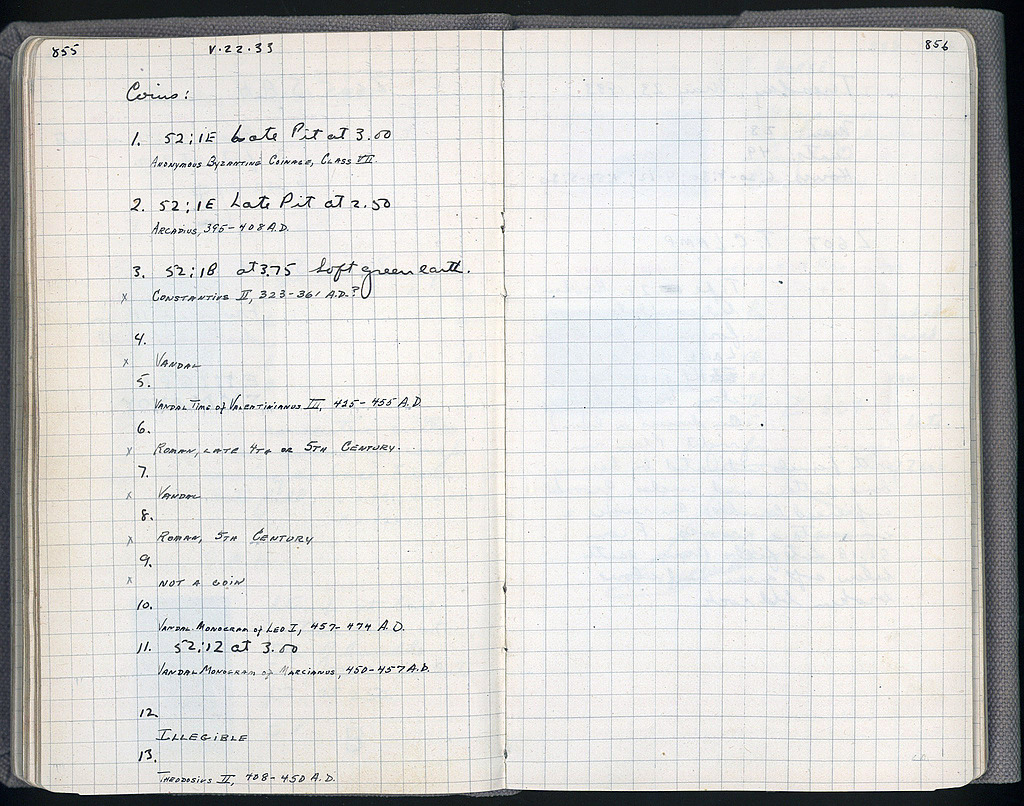 855 V.22.33
Coins:
1. 52;1E Late Pit at 3.00
Anonymous Byzantine Coinage, Class VII.
2. 52;1E Late Pit at 2.50
Arcadius, 395-408 A.D.
3. 52;1B at 3.75 Soft green earth.
x Constantius II, 323-361 A.D.?
4.
x Vandal
5.
Vandal Time of Valentinianus III, 425-455 A.D.
6.
x Roman, late 4th or 5th Century.
7.
x Vandal
8.
x Roman, 5th Century
9.
x not a coin
10.
Vandal. Monogram of Leo I, 457-474 A.D.
11. 52;12 at 3.00
Vandal Monogram of Marcianus, 450-457 A.D.
12
Illegible
13.
Theodosius II, 408-450 A.D.
856